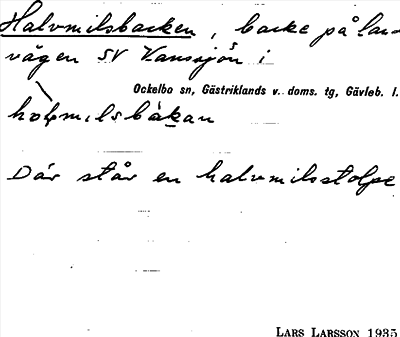 Halvmilsbacken, backe på lan-
vägen SV Vanssjön i
Ockelbo sn, Gästriklands v. doms. tg, Gävleb. l.
Där står en halvmilsstolpe
LARS LARSSON 1935